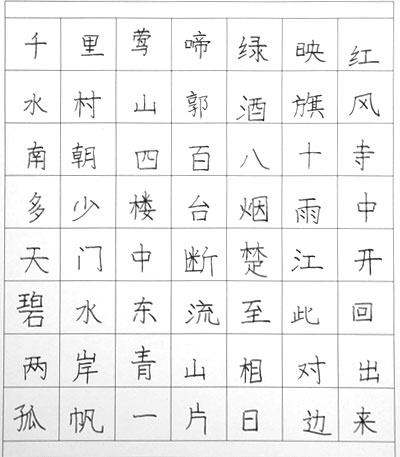 千里莺啼绿映红
水村山郭酒旗风
南朝四百八十寺
多少楼台烟雨中
天门中断楚江开
碧水东流至此回
两岸青山相对出
孤帆一片日边来